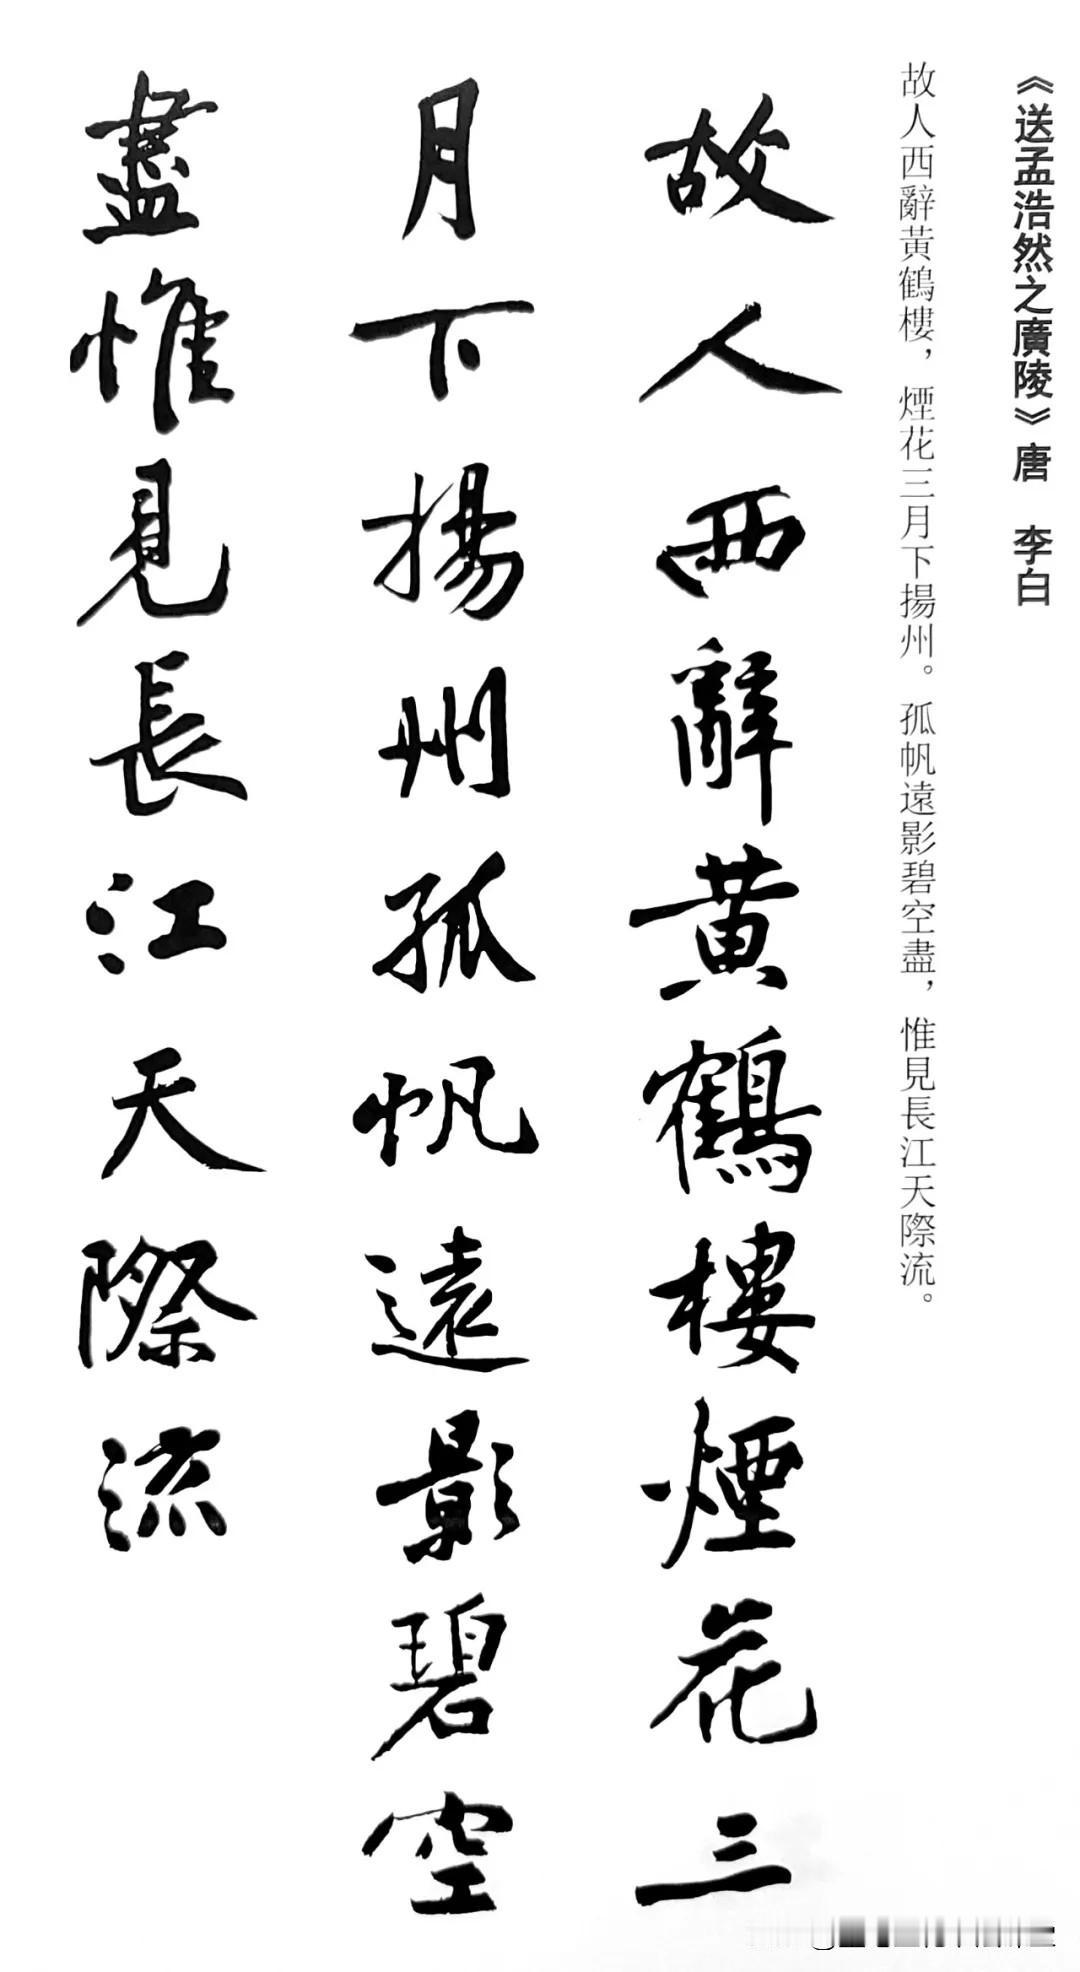 《送孟浩然之廣陵》唐　李白
故人西辭黃鶴樓，煙花三月下揚州。孤帆遠影碧空盡，惟見長江天際流。
故人西辭黃鶴樓煙花三
月下揚州孤帆遠影碧空
盡惟見長江天際流